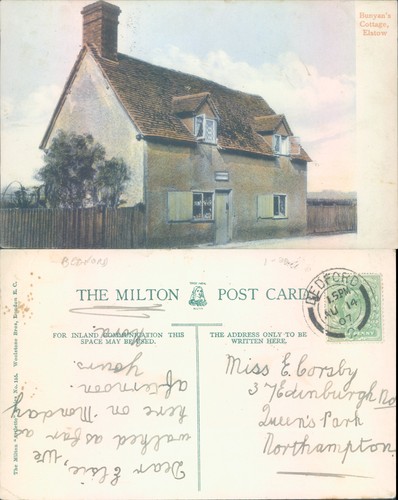 Bunyan's
Cottage,
Elstow
BEDFORD
THE MILTON POST CARD
FOR INLAND COMMUNICATION THIS
SPACE MAY BE USED.
THE ADDRESS ONLY TO BE
WRITTEN HERE.
BEDFORD
15PM
AU 14
07
Dear Elsie, we
walked as far as
here on Monday
afternoon.
Yours.
Miss E. Corsby
37 Edinburgh Rd
Queen's Park
Northampton